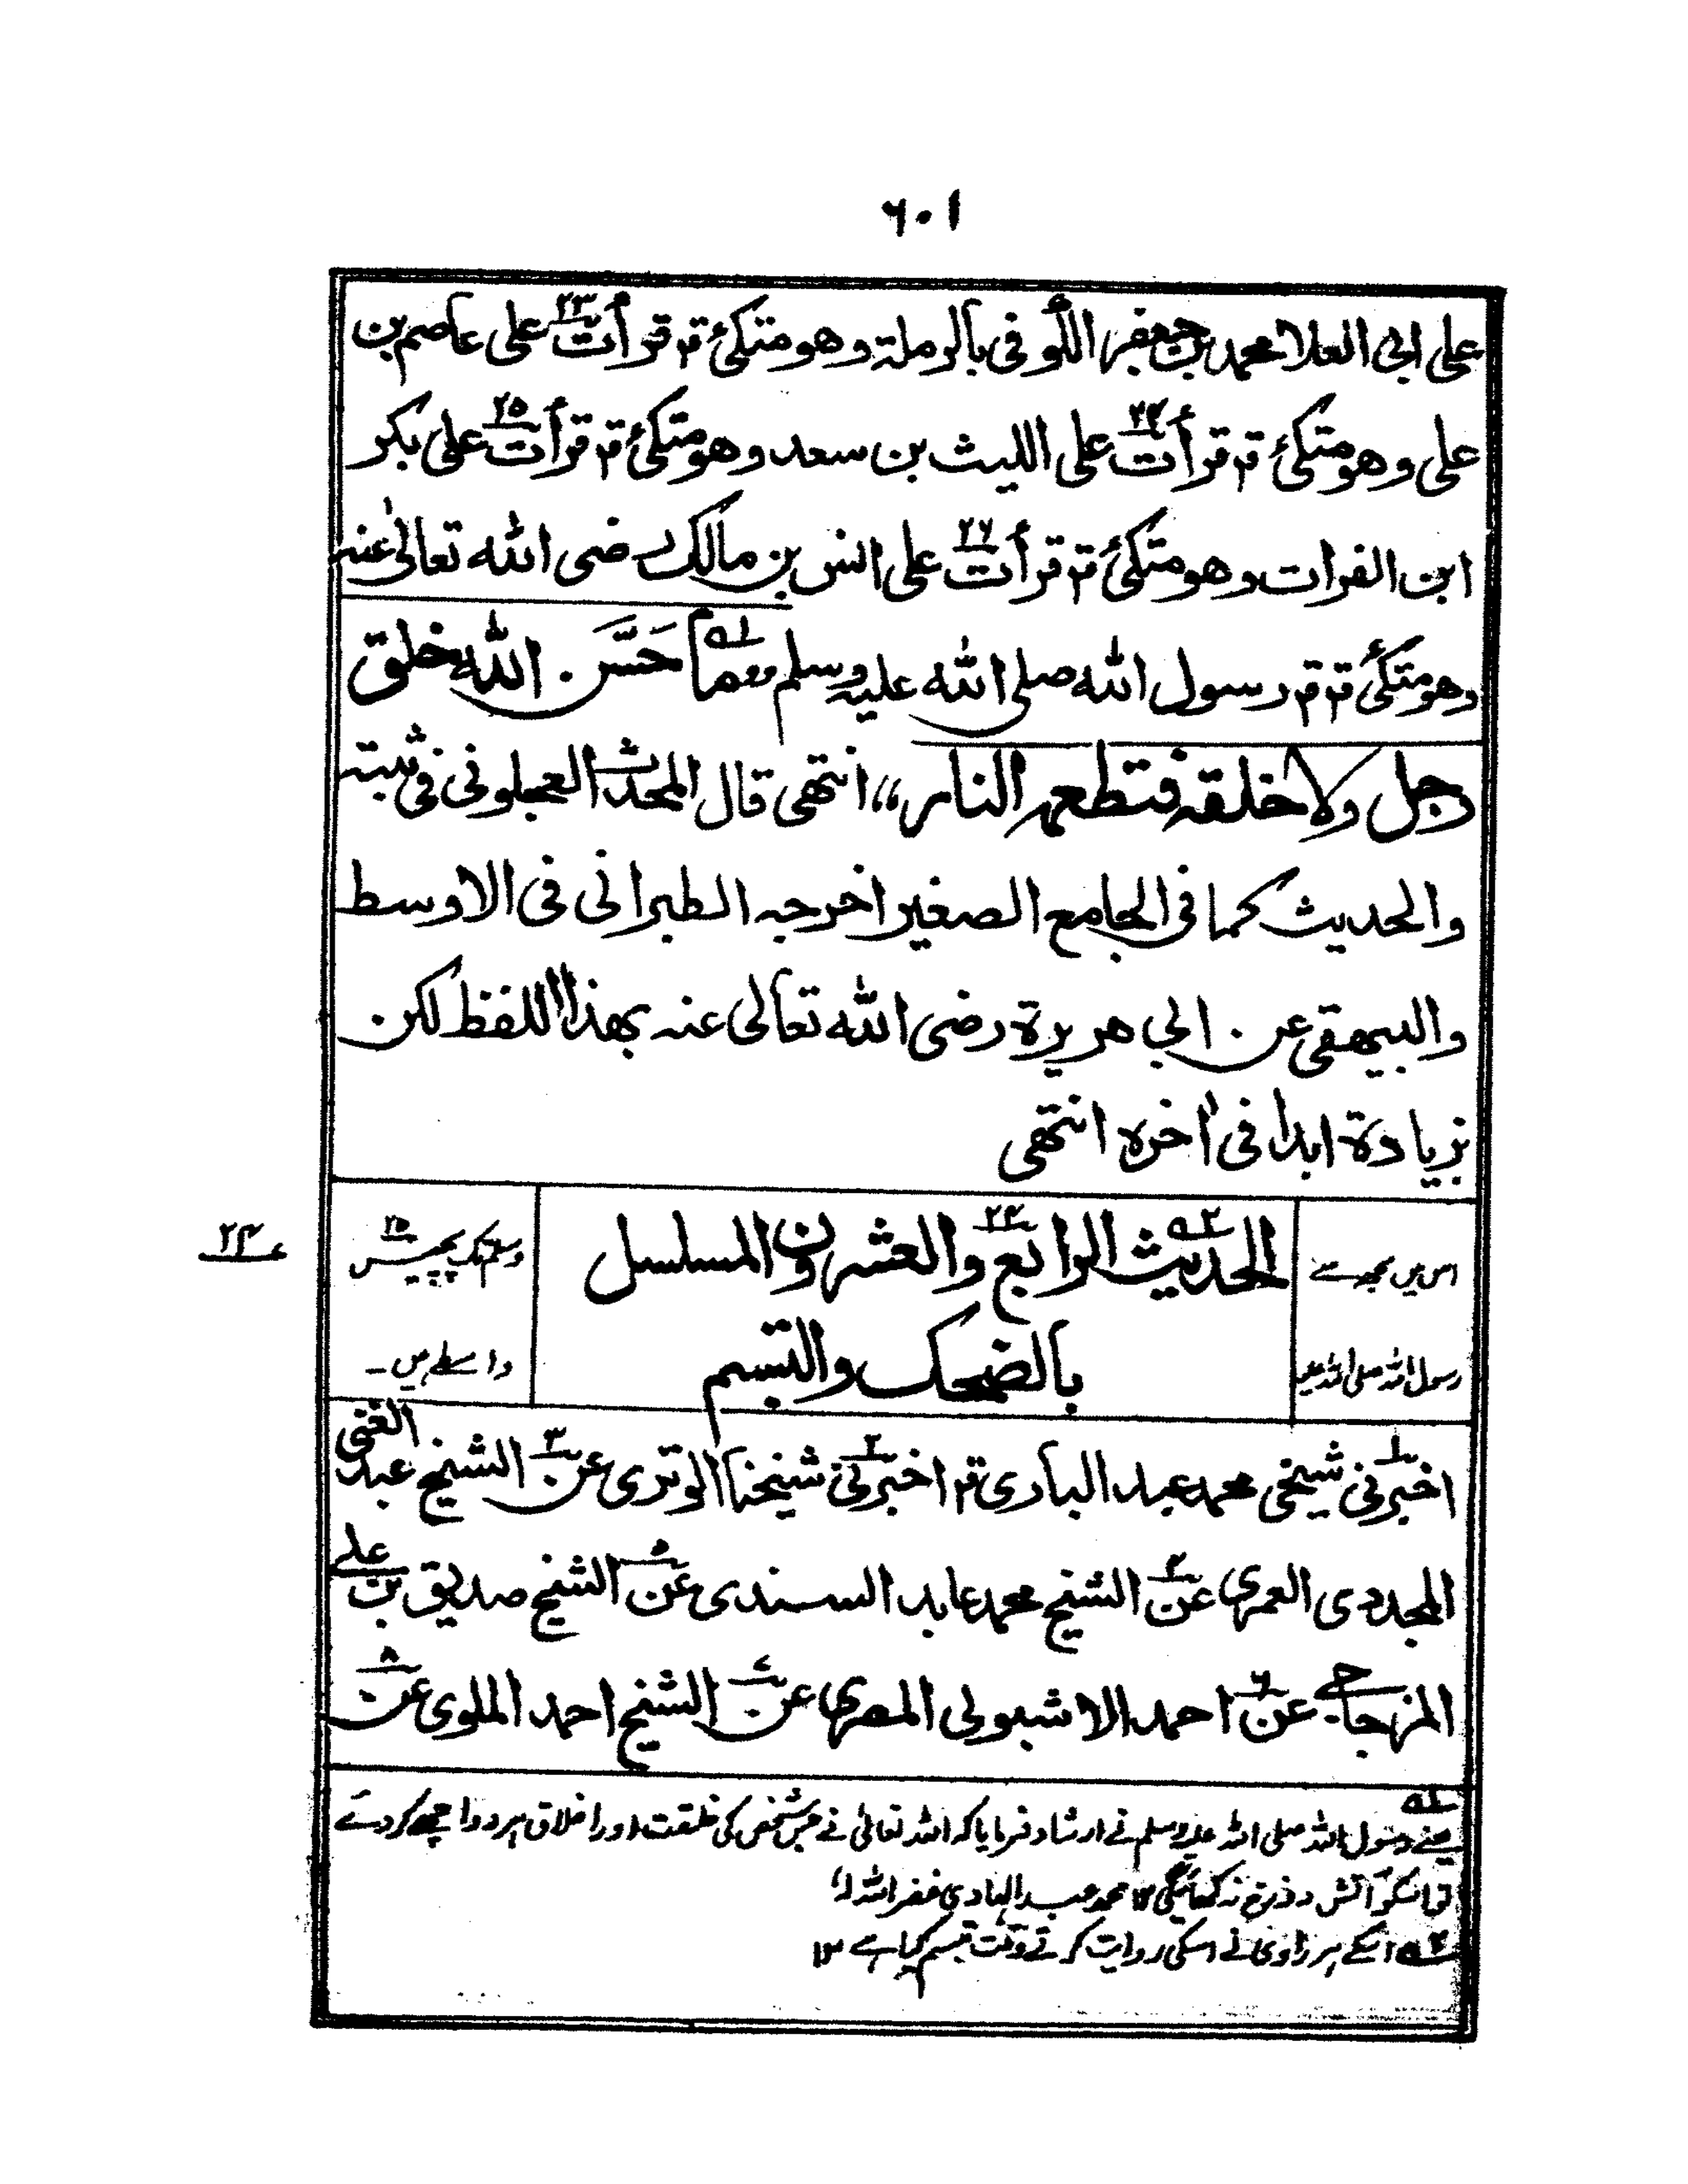 ٦٠١
على ابى العلا محمد بن جعفر اللؤفى بالرملة وهو متكئ قا قرأت٢٣ على عاصم بن
على وهو متكئ قا قرأت٢٤ على الليث بن سعد وهو متكئ قا قرأت٢٥ على بكر
ابن الفرات وهو متكئ قا قرأت٢٦ على انس بن مالك رضى الله تعالىٰ عنه
وهو متكئ قا قا رسول الله صلى الله عليه وسلم ما حَسَّن الله خلق
رجل ولا خلقه فتطعمه النار،، انتهى قال المحدث العجلونى فى ثبته
والحديث كما فى الجامع الصغير اخرجه الطبرانى فى الاوسط
والبيهقى عن ابي هريرة رضى الله تعالى عنه بهذا اللفظ لكن
بزيادة ابدا فى اٰخره انتهى
اس میں مجھ سے
رسول اللہ صلی اللہ علیہ
الحديث الرابع٢٤ والعشرون المسلسل
بالضحك والتبسم
وسلم تک پچیس٢٥
واسطے ہیں۔
٢٤
اخبرنى١ شيخى محمد عبد البارى قا اخبرنى٢ شيخنا الوترى عن٣ الشيخ عبد الغنى
المجددى العمرى عن٤ الشيخ محمد عابد السندى عن٥ الشيخ صديق بن على
المزجاجى عن٦ احمد الاشبولى المصرى عن٧ الشيخ احمد الملوى عن٨
١ یعنے رسول اللہ صلی اللہ علیہ وسلم نے ارشاد فرمایا کہ اللہ تعالیٰ نے جس شخص کی خلقت اور اخلاق ہر دو اچھے کر دے
تو اسکو آتش دوزخ نہ کھائیگی ١٢ محمد عبد الهادی غفر اللہ لہ
٢ اسکے ہر راوی نے اسکی روایت کرتے وقت تبسم کیا ہے ١٢